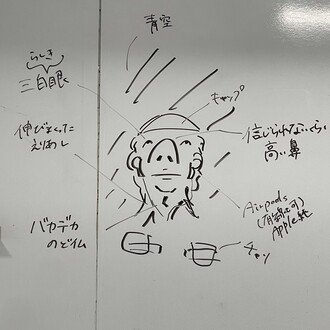 青空
らしき
三白眼
キャップ
伸びまくった
えりあし
信じられないくらい
高い鼻
バカデカ
のど仏
Airpods
Apple社
チャリ